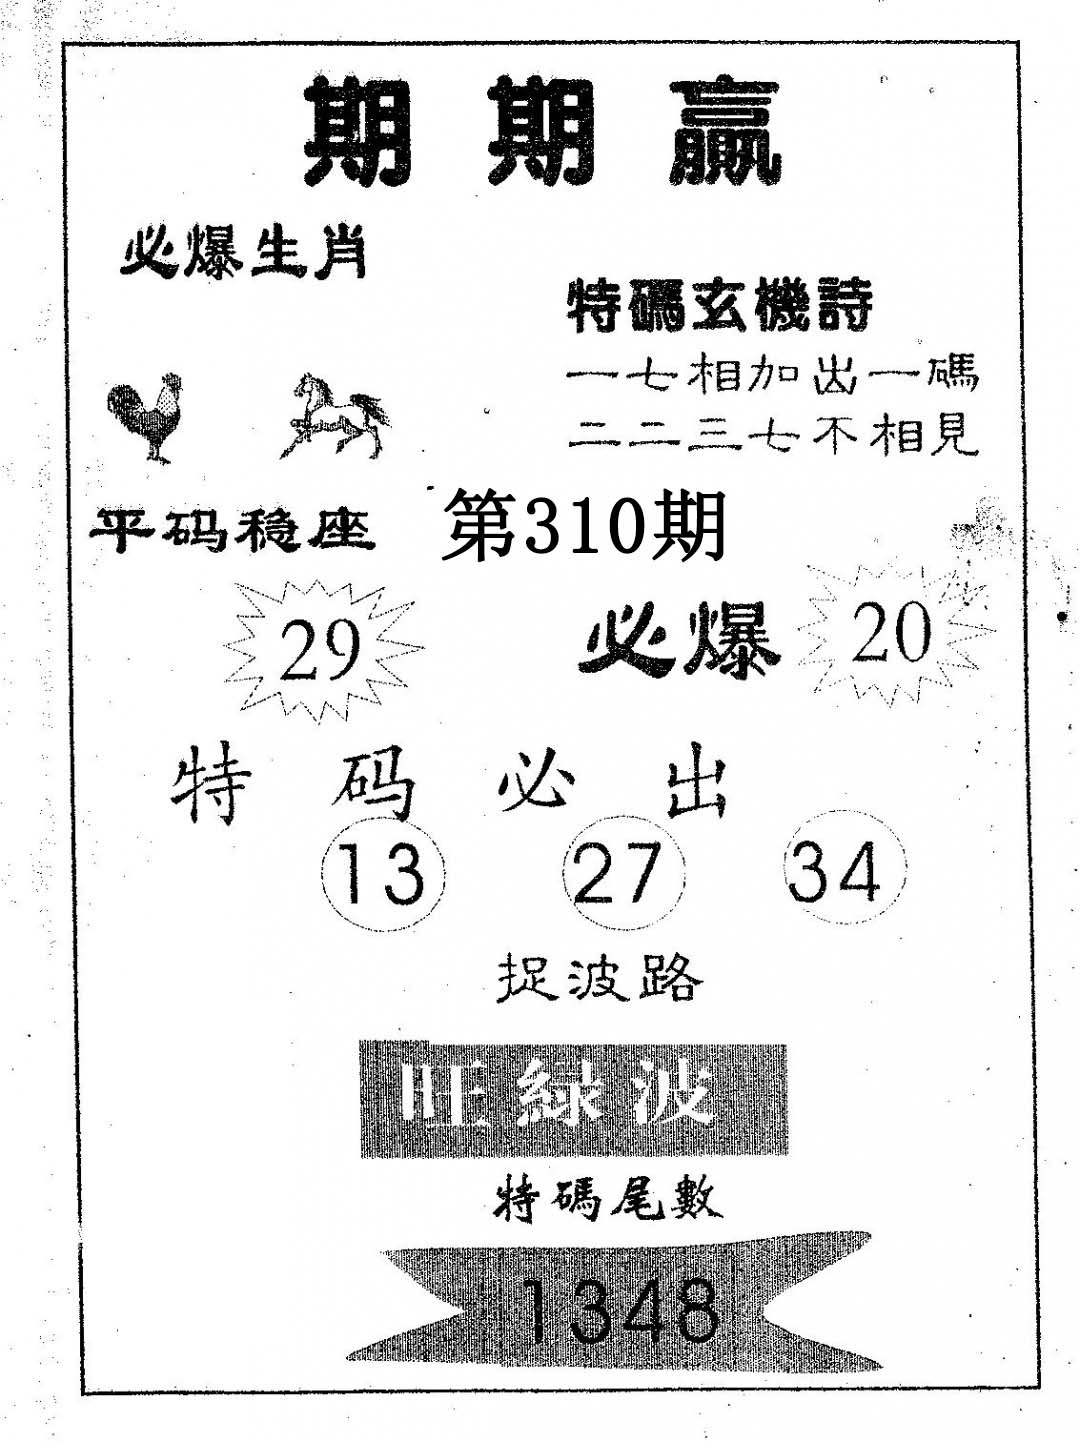 期期赢
必爆生肖
特碼玄機詩
一七相加出一碼
二二三七不相見
平码稳座
第310期
29
必爆 20
特码必出
13 27 34
捉波路
旺綠波
特碼尾數
1348